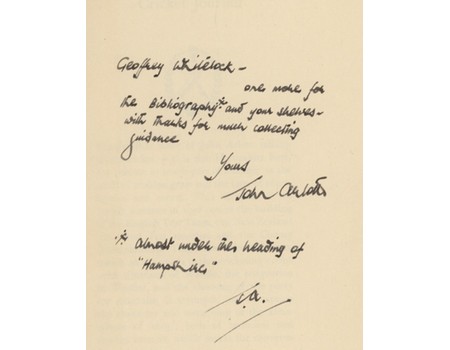 Geoffrey Whitelock -
one more for
the Bibliography* and your shelves -
with thanks for much collecting
guidance
Yours
John Arlott
* Almost under the heading of
"Hampshires"
J.A.